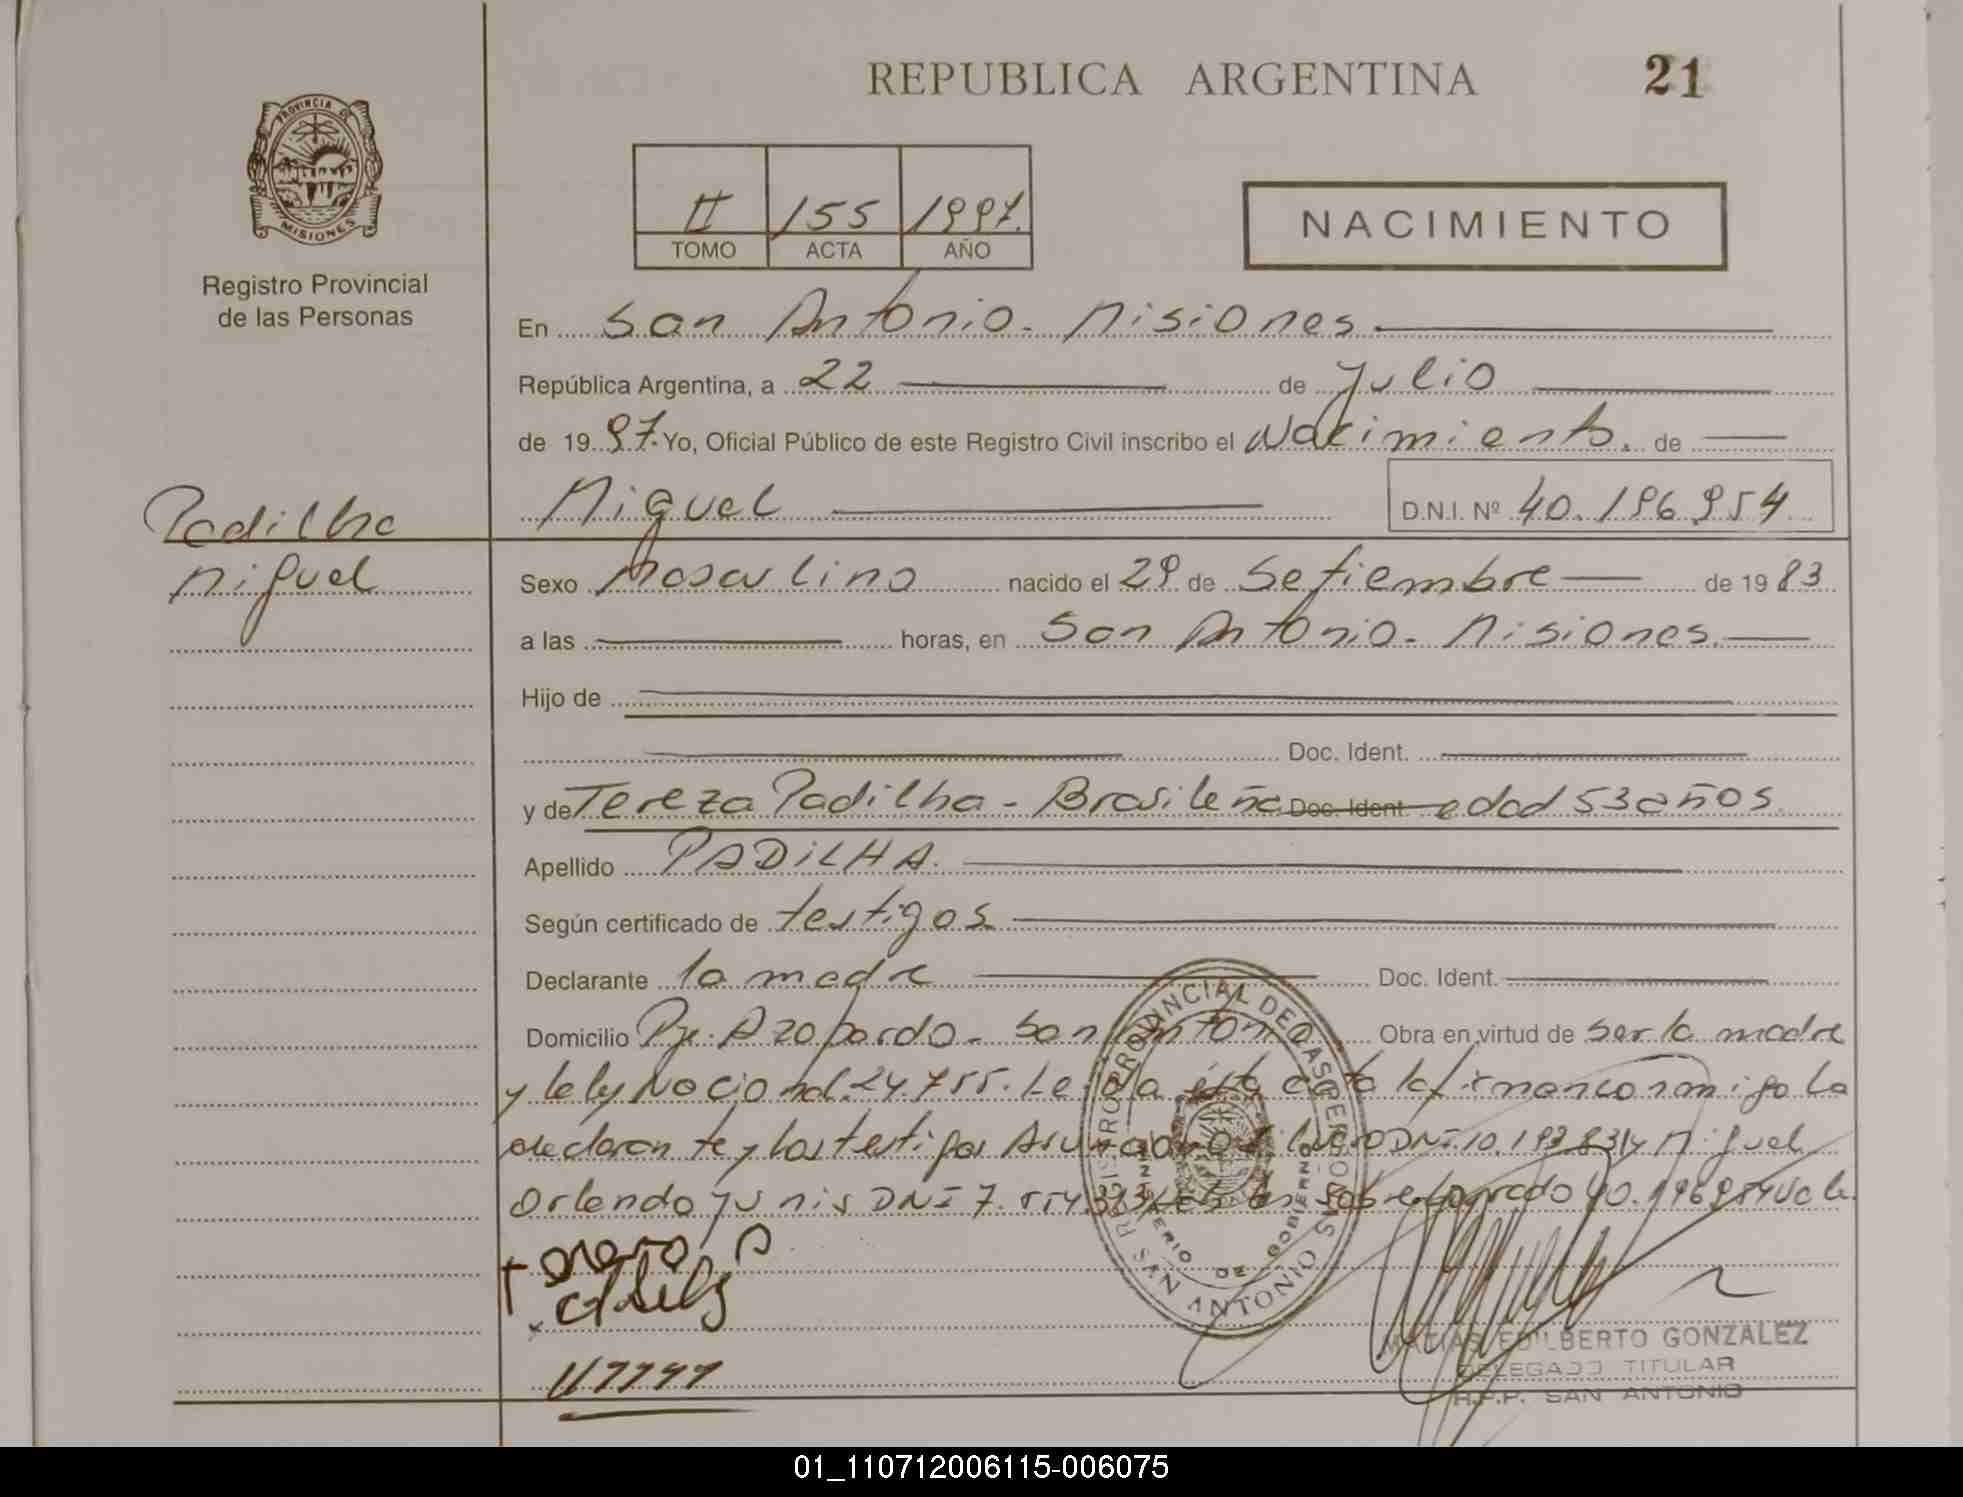 REPUBLICA ARGENTINA 21
PROVINCIA DE
MISIONES
Registro Provincial
de las Personas
II 155 1997.
TOMO ACTA AÑO
NACIMIENTO
En San Antonio - Misiones
República Argentina, a 22 de Julio
de 19 97. Yo, Oficial Público de este Registro Civil inscribo el Nacimiento. de
Padilha
Miguel
Miguel
D.N.I. Nº 40.196.954
Sexo Masculino nacido el 29 de Setiembre de 19 83
a las horas, en San Antonio - Misiones.
Hijo de
Doc. Ident.
y de Tereza Padilha - Brasileña Doc. Ident edad 53 años
Apellido PADILHA.
Según certificado de testigos
Declarante la madre Doc. Ident.
Domicilio Pje. Azopardo - San Antonio Obra en virtud de ser la madre
y la ley Nacional 24.755. Leída ésta acta la firman conmigo la
declarante y los testigos DNI. 10.193.831 y Miguel
Orlando DNI 7. 40.196954 Vale.
REGISTRO PROVINCIAL DE LAS PERSONAS
MINISTERIO DE GOBIERNO
SAN ANTONIO
MATIAS EDILBERTO GONZALEZ
DELEGADO TITULAR
R.P.P. SAN ANTONIO
01_110712006115-006075